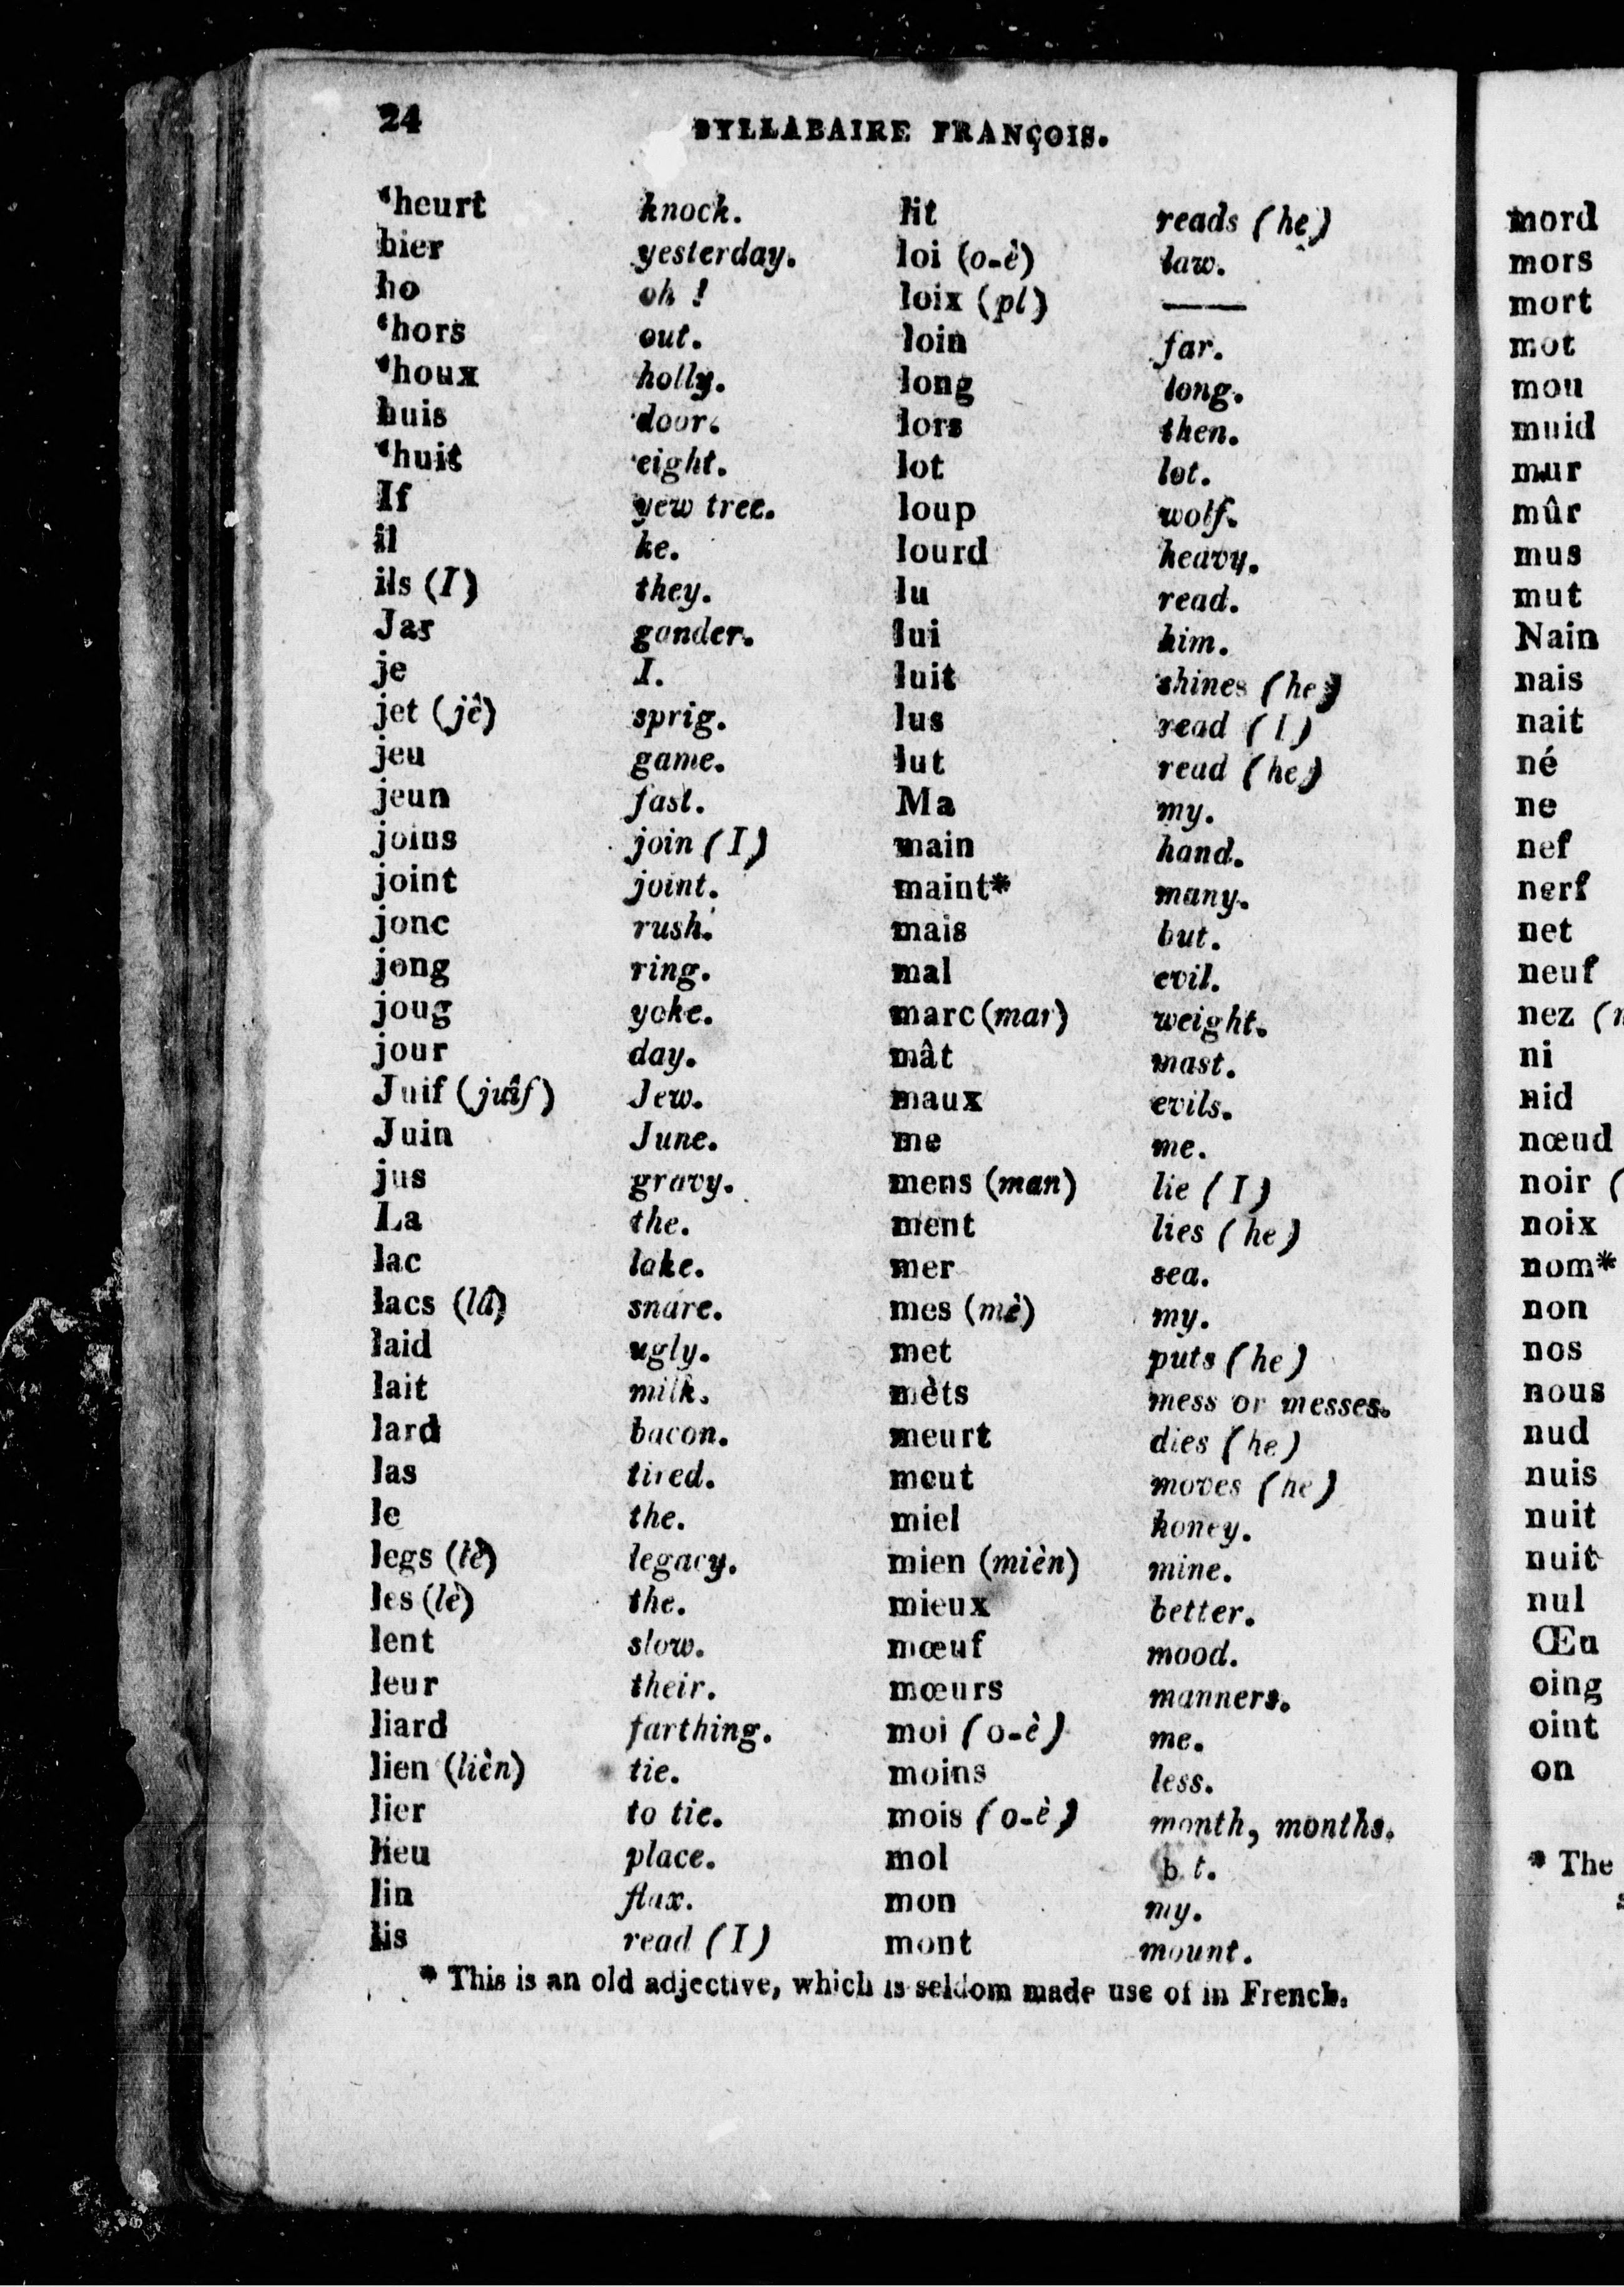 24 SYLLABAIRE FRANÇOIS.
‘heurt knock. lit reads (he)
hier yesterday. loi (o-è) law.
ho oh ! loix (pl) ——
‘hors out. loin far.
‘houx holly. long long.
huis door. lors then.
‘huit eight. lot lot.
If yew tree. loup wolf.
il he. lourd heavy.
ils (I) they. lu read.
Jar gander. lui him.
je I. luit shines (he)
jet (jê) sprig. lus read (I)
jeu game. lut read (he)
jeun fast. Ma my.
joins join (I) main hand.
joint joint. maint* many.
jonc rush. mais but.
jong ring. mal evil.
joug yoke. marc (mar) weight.
jour day. mât mast.
Juif (juîf) Jew. maux evils.
Juin June. me me.
jus gravy. mens (man) lie (I)
La the. ment lies (he)
lac lake. mer sea.
lacs (lâ) snare. mes (mè) my.
laid ugly. met puts (he)
lait milk. mèts mess or messes.
lard bacon. meurt dies (he)
las tired. meut moves (he)
le the. miel honey.
legs (lè) legacy. mien (mièn) mine.
les (lè) the. mieux better.
lent slow. mœuf mood.
leur their. mœurs manners.
liard farthing. moi (o-è) me.
lien (lièn) tie. moins less.
lier to tie. mois (o-è) month, months.
lieu place. mol
lin flax. mon my.
lis read (I) mont mount.
* This is an old adjective, which is seldom made use of in French.
mord
mors
mort
mot
mou
muid
mur
mûr
mus
mut
Nain
nais
nait
né
ne
nef
nerf
net
neuf
nez (
ni
nid
nœud
noir (
noix
nom*
non
nos
nous
nud
nuis
nuit
nuit
nul
Œu
oing
oint
on
* The